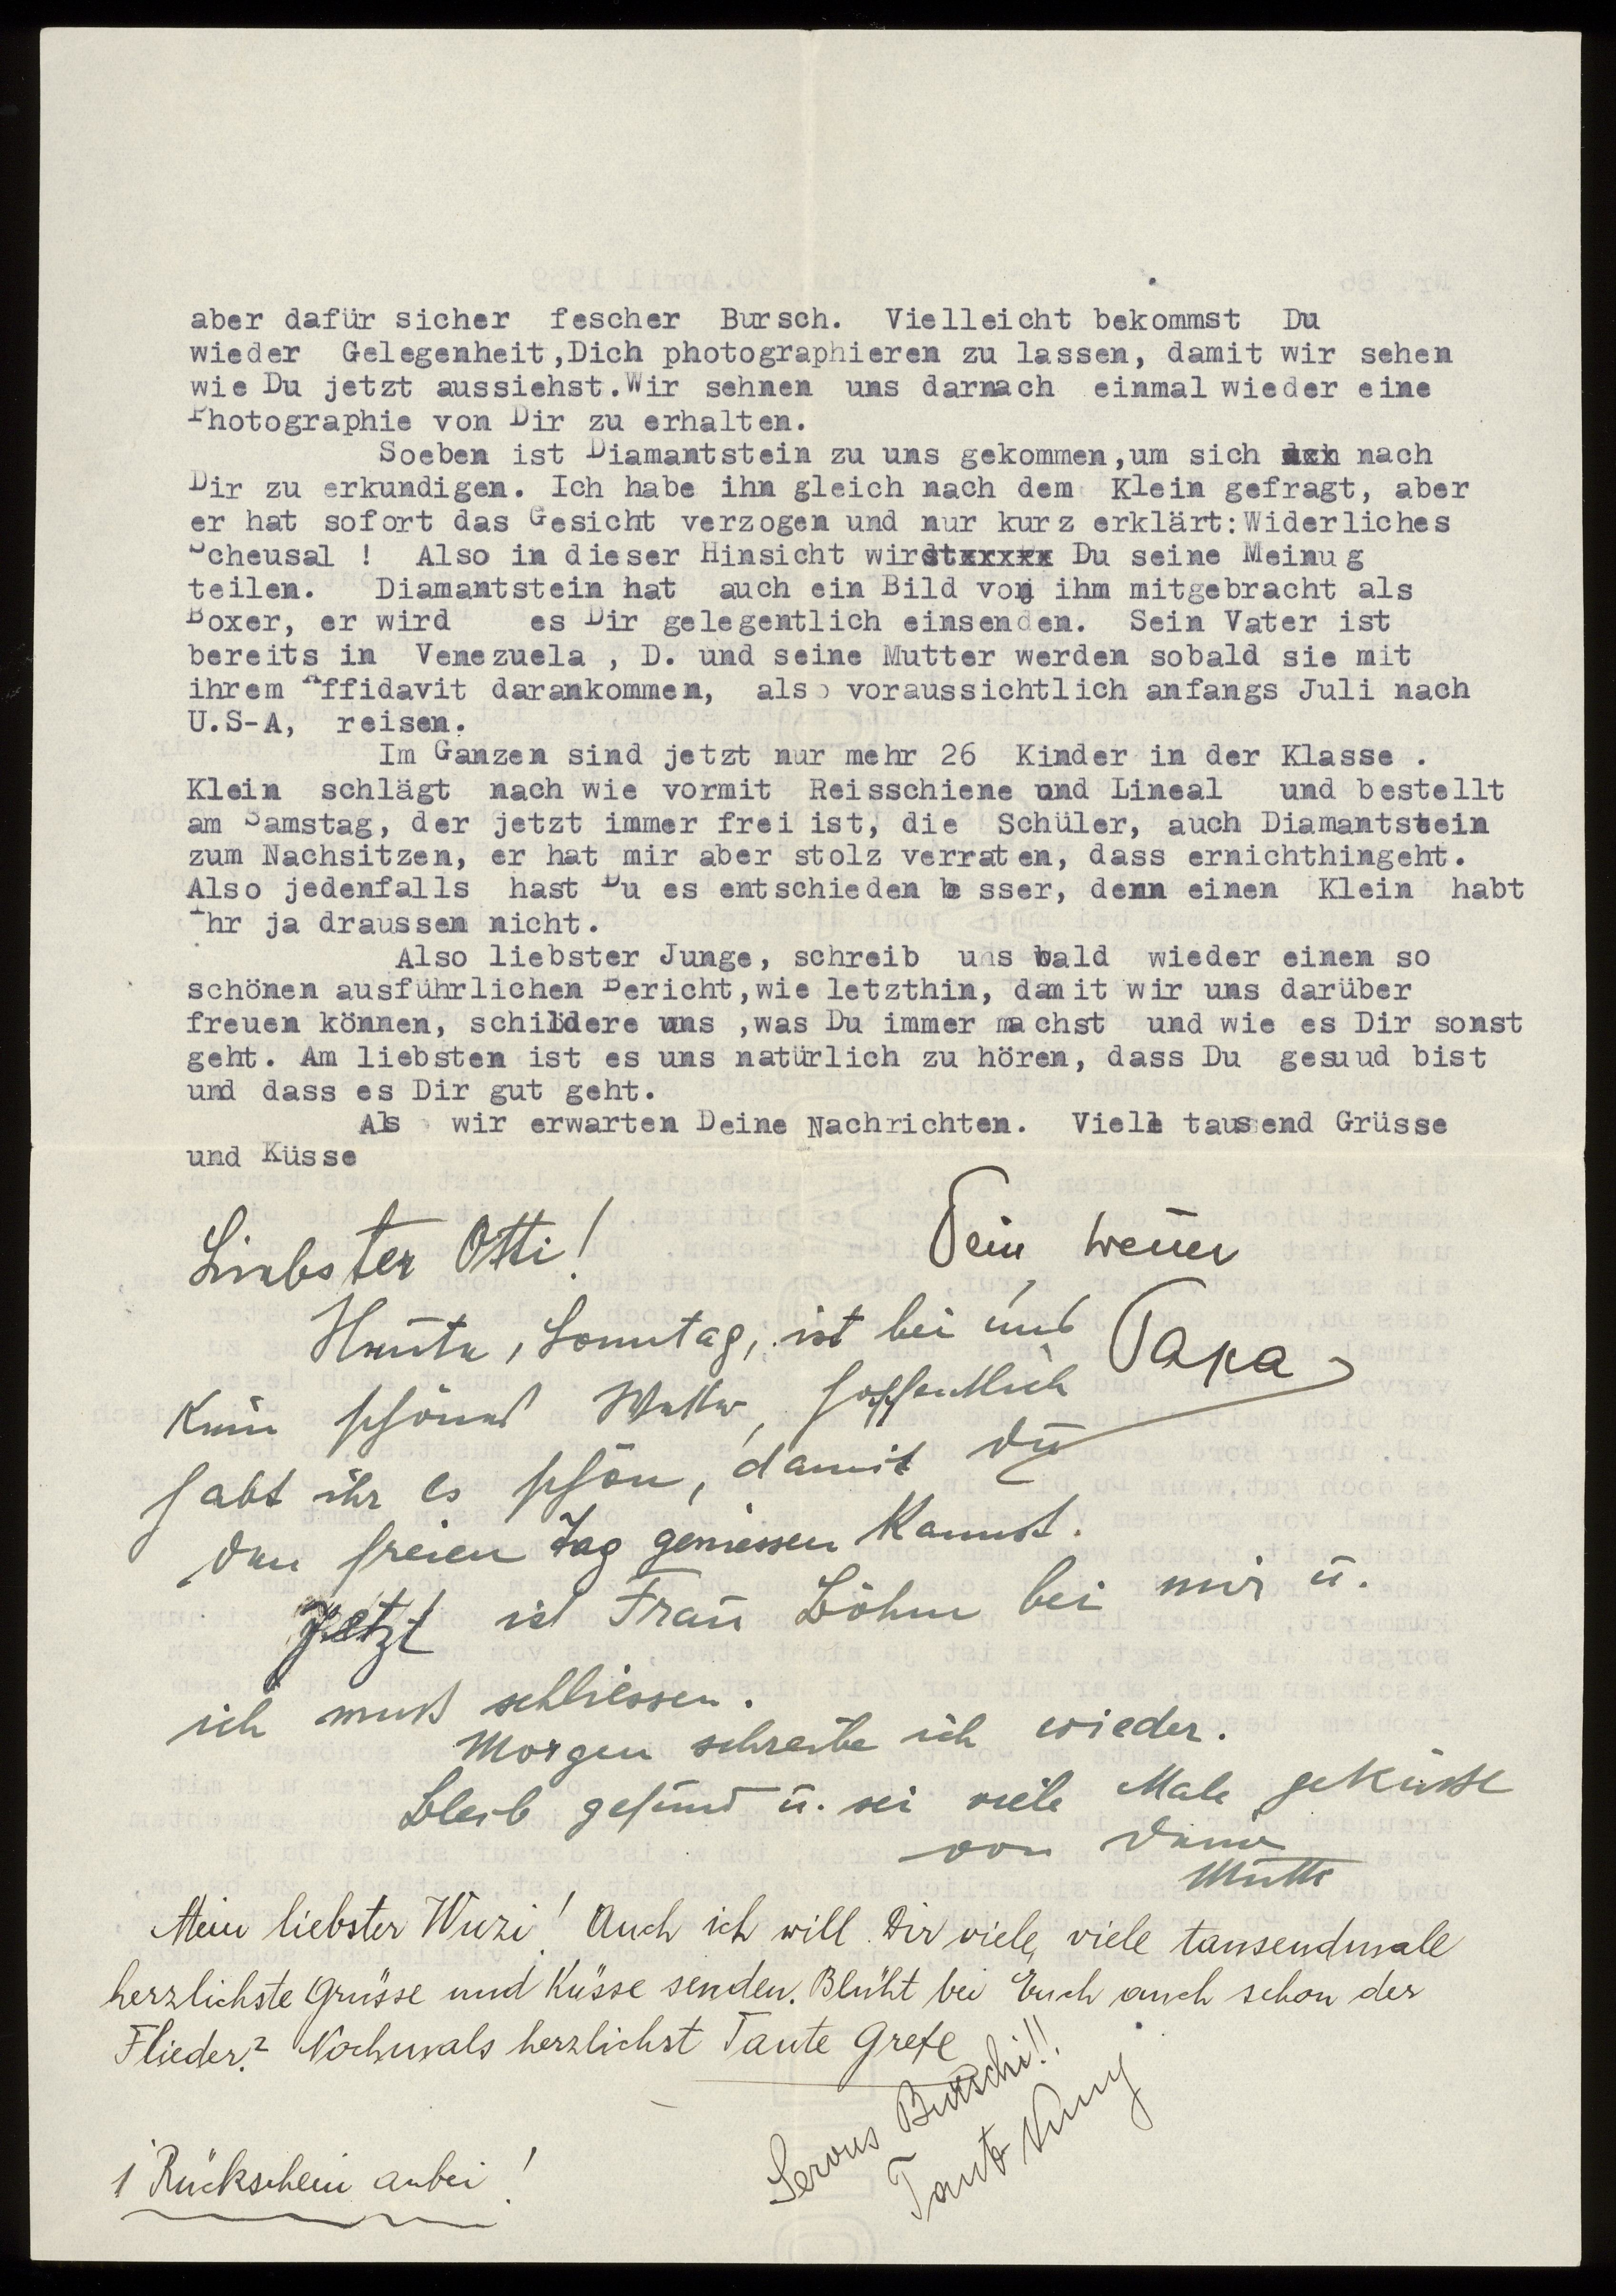 aber dafür sicher fescher Bursch. Vielleicht bekommst Du
wieder Gelegenheit,Dich photographieren zu lassen, damit wir sehen
wie Du jetzt aussiehst.Wir sehnen uns darnach einmal wieder eine
Photographie von Dir zu erhalten.
Soeben ist Diamantstein zu uns gekommen,um sich nach
Dir zu erkundigen. Ich habe ihn gleich nach dem Klein gefragt, aber
er hat sofort das Gesicht verzogen und nur kurz erklärt:Widerliches
Scheusal ! Also in dieser Hinsicht wirstxxxxx Du seine Meinug
teilen. Diamantstein hat auch ein Bild von ihm mitgebracht als
Boxer, er wird es Dir gelegentlich einsenden. Sein Vater ist
bereits in Venezuela , D. und seine Mutter werden sobald sie mit
ihrem Affidavit darankommen, also voraussichtlich anfangs Juli nach
U.S-A, reisen.
Im Ganzen sind jetzt nur mehr 26 Kinder in der Klasse .
Klein schlägt nach wie vormit Reisschiene und Lineal und bestellt
am Samstag, der jetzt immer frei ist, die Schüler, auch Diamantstein
zum Nachsitzen, er hat mir aber stolz verraten, dass ernichthingeht.
Also jedenfalls hast Du es entschieden besser, denn einen Klein habt
Ihr ja draussen nicht.
Also liebster Junge, schreib uns bald wieder einen so
schönen ausführlichen Bericht,wie letzthin, damit wir uns darüber
freuen können, schildere uns ,was Du immer machst und wie es Dir sonst
geht. Am liebsten ist es uns natürlich zu hören, dass Du gesuud bist
und dass es Dir gut geht.
Also wir erwarten Deine Nachrichten. Viele tausend Grüsse
und Küsse
Dein treuer
Papa
Liebster Otti!
Heute, Sonntag, ist bei uns
kein schönes Wetter, hoffentlich
habt ihr es schön, damit Du
den freien Tag geniessen kannst.
Jetzt ist Frau Böhm bei mir u.
ich muß schliessen.
Morgen schreibe ich wieder.
Bleib gesund u. sei viele Male geküsst
von Deiner
Mutti
Mein liebster Wuzi! Auch ich will Dir viele, viele tausendmale
herzlichste Grüsse und Küsse senden. Blüht bei Euch auch schon der
Flieder? Nochmals herzlichst Tante Grete
Servus Burschi!!
Tante Nuny
1 Rückschein anbei!